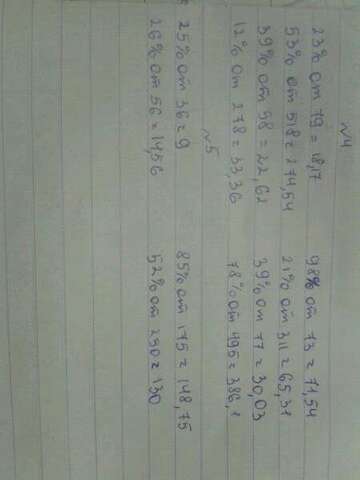 №4
23% от 79 = 18,17 98% от 73 = 71,54
53% от 518 = 274,54 21% от 311 = 65,31
39% от 58 = 22,62 39% от 77 = 30,03
12% от 278 = 33,36 78% от 495 = 386,1
№5
25% от 36 = 9 85% от 175 = 148,75
26% от 56 = 14,56 52% от 250 = 130